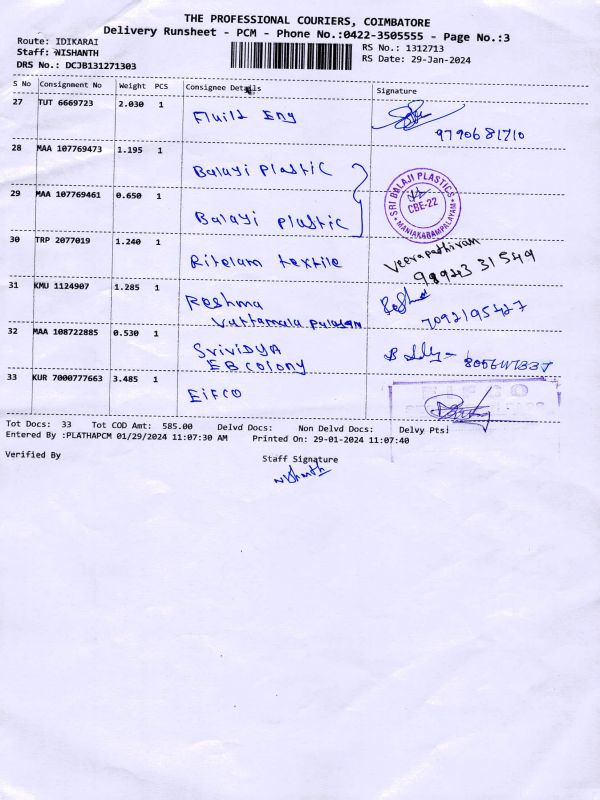 THE PROFESSIONAL COURIERS, COIMBATORE
Delivery Runsheet - PCM - Phone No.:0422-3505555 - Page No.:3
Route: IDIKARAI
RS No.: 1312713
Staff: NISHANTH
RS Date: 29-Jan-2024
DRS No.: DCJB131271303
S No Consignment No Weight PCS Consignee Details Signature
27 TUT 6669723 2.030 1 Fluild Eng
9790681710
28 MAA 107769473 1.195 1 Balayi plastic
29 MAA 107769461 0.650 1 Balayi plastic
SRI BALAJI PLASTICS
CBE-22
MANIAKARAMPALAYAM
30 TRP 2077019 1.240 1 Ritelam textile Veerapathiran
98943 31549
31 KMU 1124907 1.285 1 Reshma
Vattamala palayan 7092195427
32 MAA 108722885 0.530 1 SriviDYA
EB colony
33 KUR 7000777663 3.485 1 EiFCO
Tot Docs: 33 Tot COD Amt: 585.00 Delvd Docs: Non Delvd Docs: Delvy Pts:
Entered By :PLATHAPCM 01/29/2024 11:07:30 AM Printed On: 29-01-2024 11:07:40
Verified By Staff Signature
Nishanth